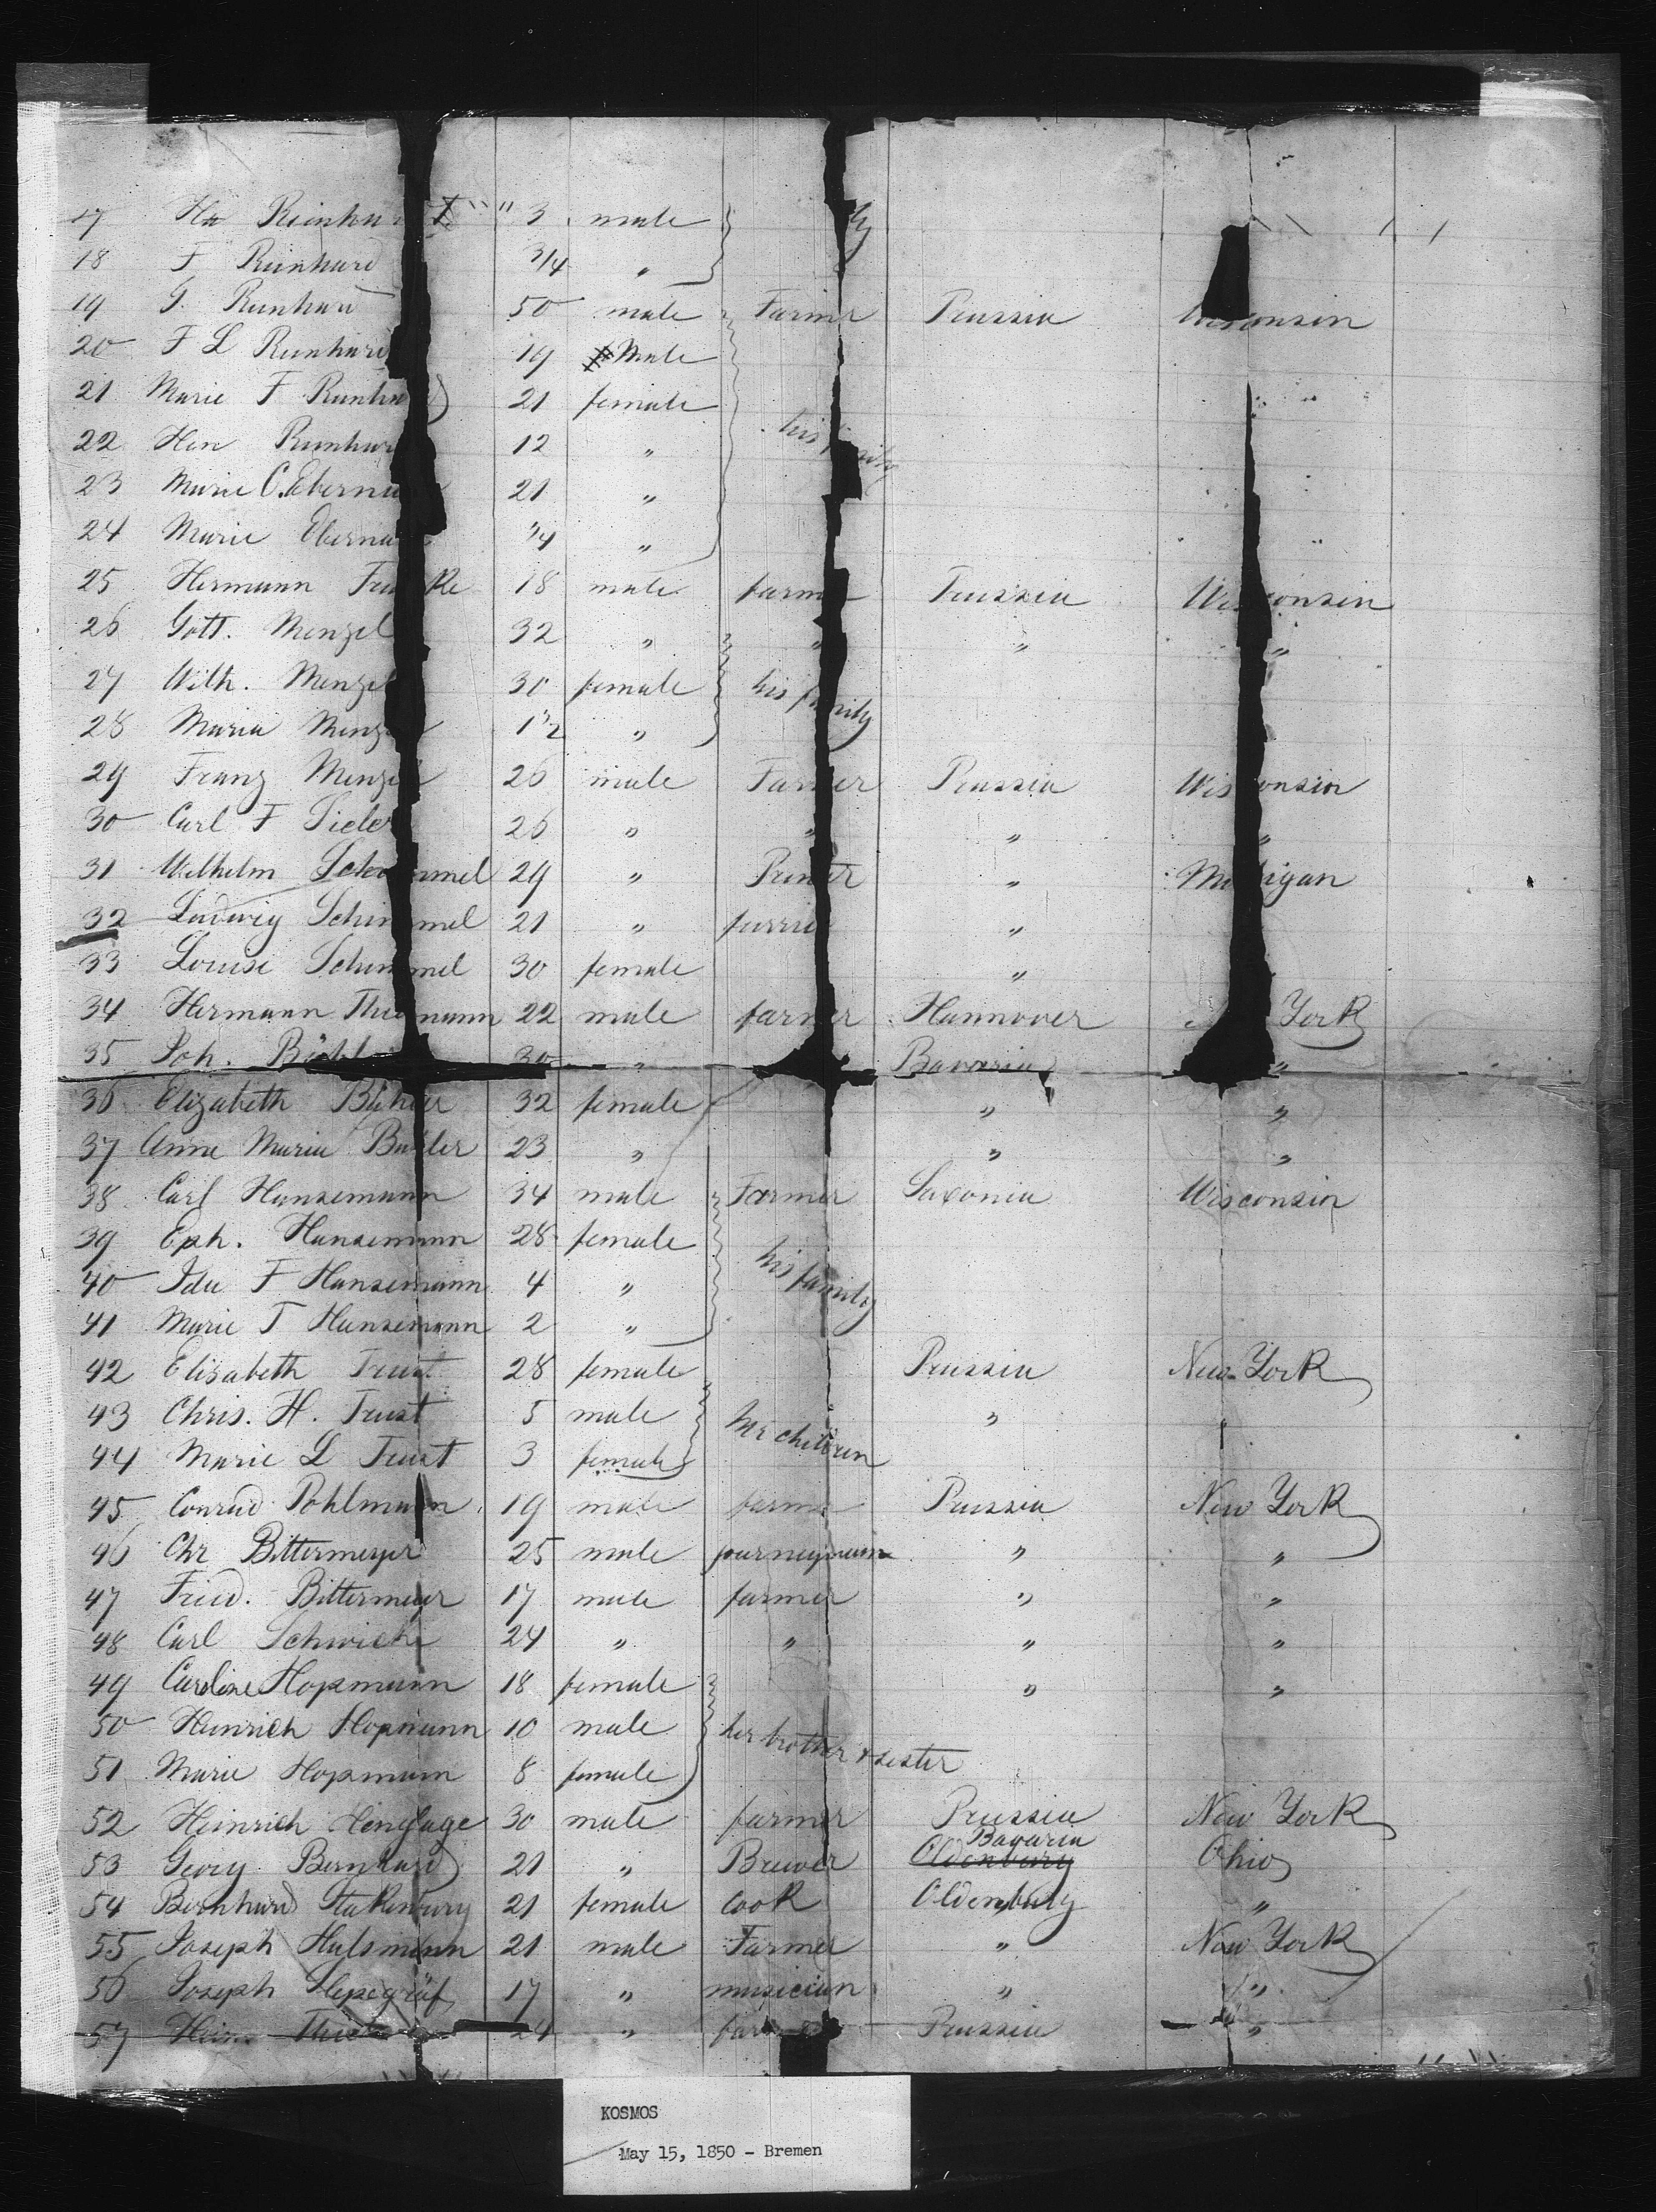 17 Reinhardt 3 male
18 F Reinhard 3/4 "
19 G. Reinhard 50 male Farmer Prussia Wisconsin
20 F L Reinhard 19 Male
21 Marie F Reinhard 21 female
22 Hen Reinhard 12 "
his family
23 Marie C. Eberna 21 "
24 Marie Eberna 1/4 "
25 Hermann 18 male farmer Prussia Wisconsin
26 Gott. Menzel 32 " " " "
27 Wilh. Menzel 30 female his family
28 Maria Menzel 1 1/2 "
29 Franz Menzel 26 male Farmer Prussia Wisconsin
30 Carl F Sieler 26 " " " "
31 Wilhelm Schimmel 29 " Printer " Michigan
32 Ludwig Schimmel 21 " furrier "
33 Louise Schimmel 30 female "
34 Hermann Thiemann 22 male farmer Hannover New York
35 Joh. 30 " Bavaria "
36 Elizabeth 32 female " "
37 Anna Maria Buhler 23 " " "
38 Carl Hansemann 34 male Farmer Saxonia Wisconsin
39 Eph. Hansemann 28 female
his family
40 Ida F Hansemann 4 "
41 Marie T Hansemann 2 "
42 Elisabeth Trust 28 female Prussia New-York
43 Chris. H. Trust 5 male "
children
44 Marie L Trust 3 female
45 Conrad Pohlmann 19 male farmer Prussia New York
46 Chr Bittermeyer 25 male journeyman " "
47 Fried. Bittermeyer 17 male farmer " "
48 Carl Schwicke 24 " " " "
49 Caroline Hopmann 18 female " "
50 Heinrich Hopmann 10 male her brother & sister
51 Marie Hopmann 8 female
52 Heinrich Henghage 30 male farmer Prussia New York
Bavaria
53 Georg Bernhard 21 " Brewer Oldenburg Ohio
54 Bernhard Stakenburg 21 female cook Oldenburg "
55 Joseph Hulsmann 21 male Farmer " New York
56 Joseph 17 " musician " "
57 24 " farmer Prussia "
KOSMOS
May 15, 1850 - Bremen